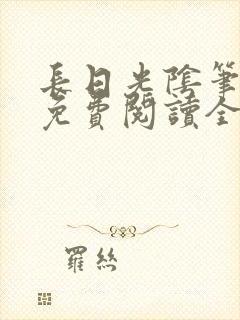 長日光陰筆
免費閱讀全
羅絲